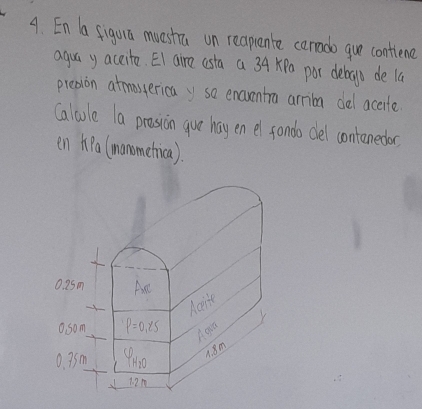 4. En la figura muestra un recipiente cerrado que contiene
agua y aceite. El aire esta a 34 KPa por debajo de la
presión atmosferica y se encuentra arriba del aceite.
Calcule la presión que hay en el fondo del contenedor
en KPa (manometrica).
0.25m
Aire
Aceite
0.50m
ρ=0,85
Agua
0.75m
φH₂O
1.8m
1.2m